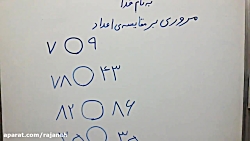 به نام خدا
مروری بر مقایسه‌ی اعداد
۷ ○ ۹
۷۸ ○ ۴۳
۸۲ ○ ۸۶
aparat.com/rajanch